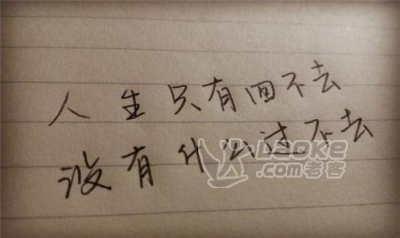 人生只有回不去
没有什么过不去
Laoke
.com老客